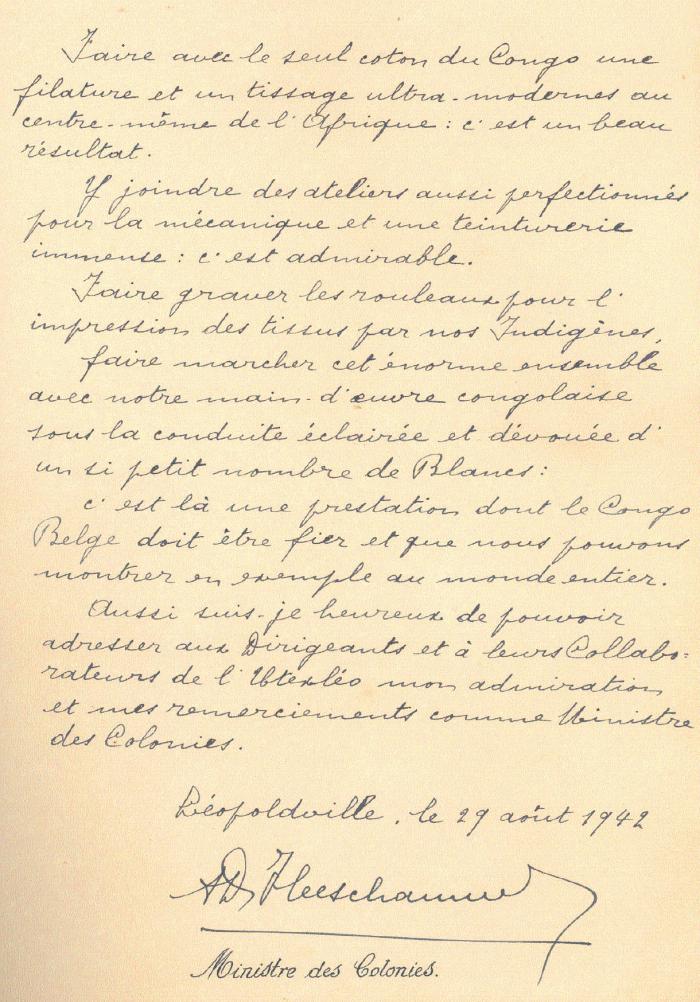 Faire avec le seul coton du Congo une
filature et un tissage ultra-modernes au
centre-même de l'Afrique : c'est un beau
résultat.
Y joindre des ateliers aussi perfectionnés
pour la mécanique et une teinturerie
immense : c'est admirable.
Faire graver les rouleaux pour l'
impression des tissus par nos Indigènes,
faire marcher cet énorme ensemble
avec notre main-d'œuvre congolaise
sous la conduite éclairée et dévouée d'
un si petit nombre de Blancs :
c'est là une prestation dont le Congo
Belge doit être fier et que nous pouvons
montrer en exemple au monde entier.
Aussi suis-je heureux de pouvoir
adresser aux Dirigeants et à leurs Collabo=
rateurs de l'Utexléo mon admiration
et mes remerciements comme Ministre
des Colonies.
Léopoldville, le 29 août 1942
Ministre des Colonies.